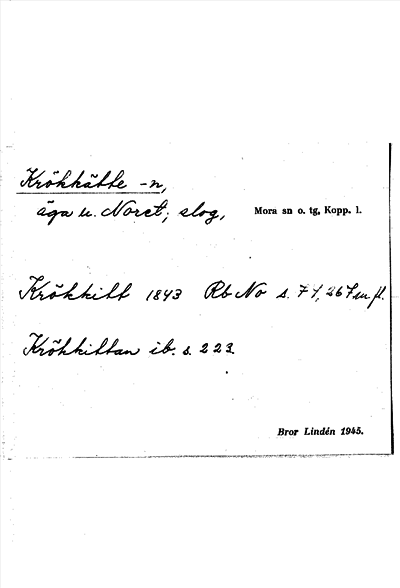 Krökkätte -n,
äga u. Noret; slog, Mora sn o. tg, Kopp. l.
Krökkitt 1843 Rb No s. 71, 267 m fl.
Krökkittan ib. s. 223.
Bror Lindén 1945.